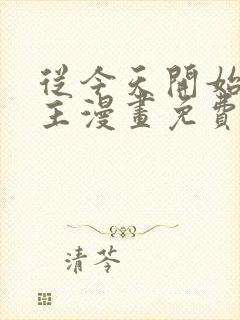 從今天開始
主漫畫免費
清苓